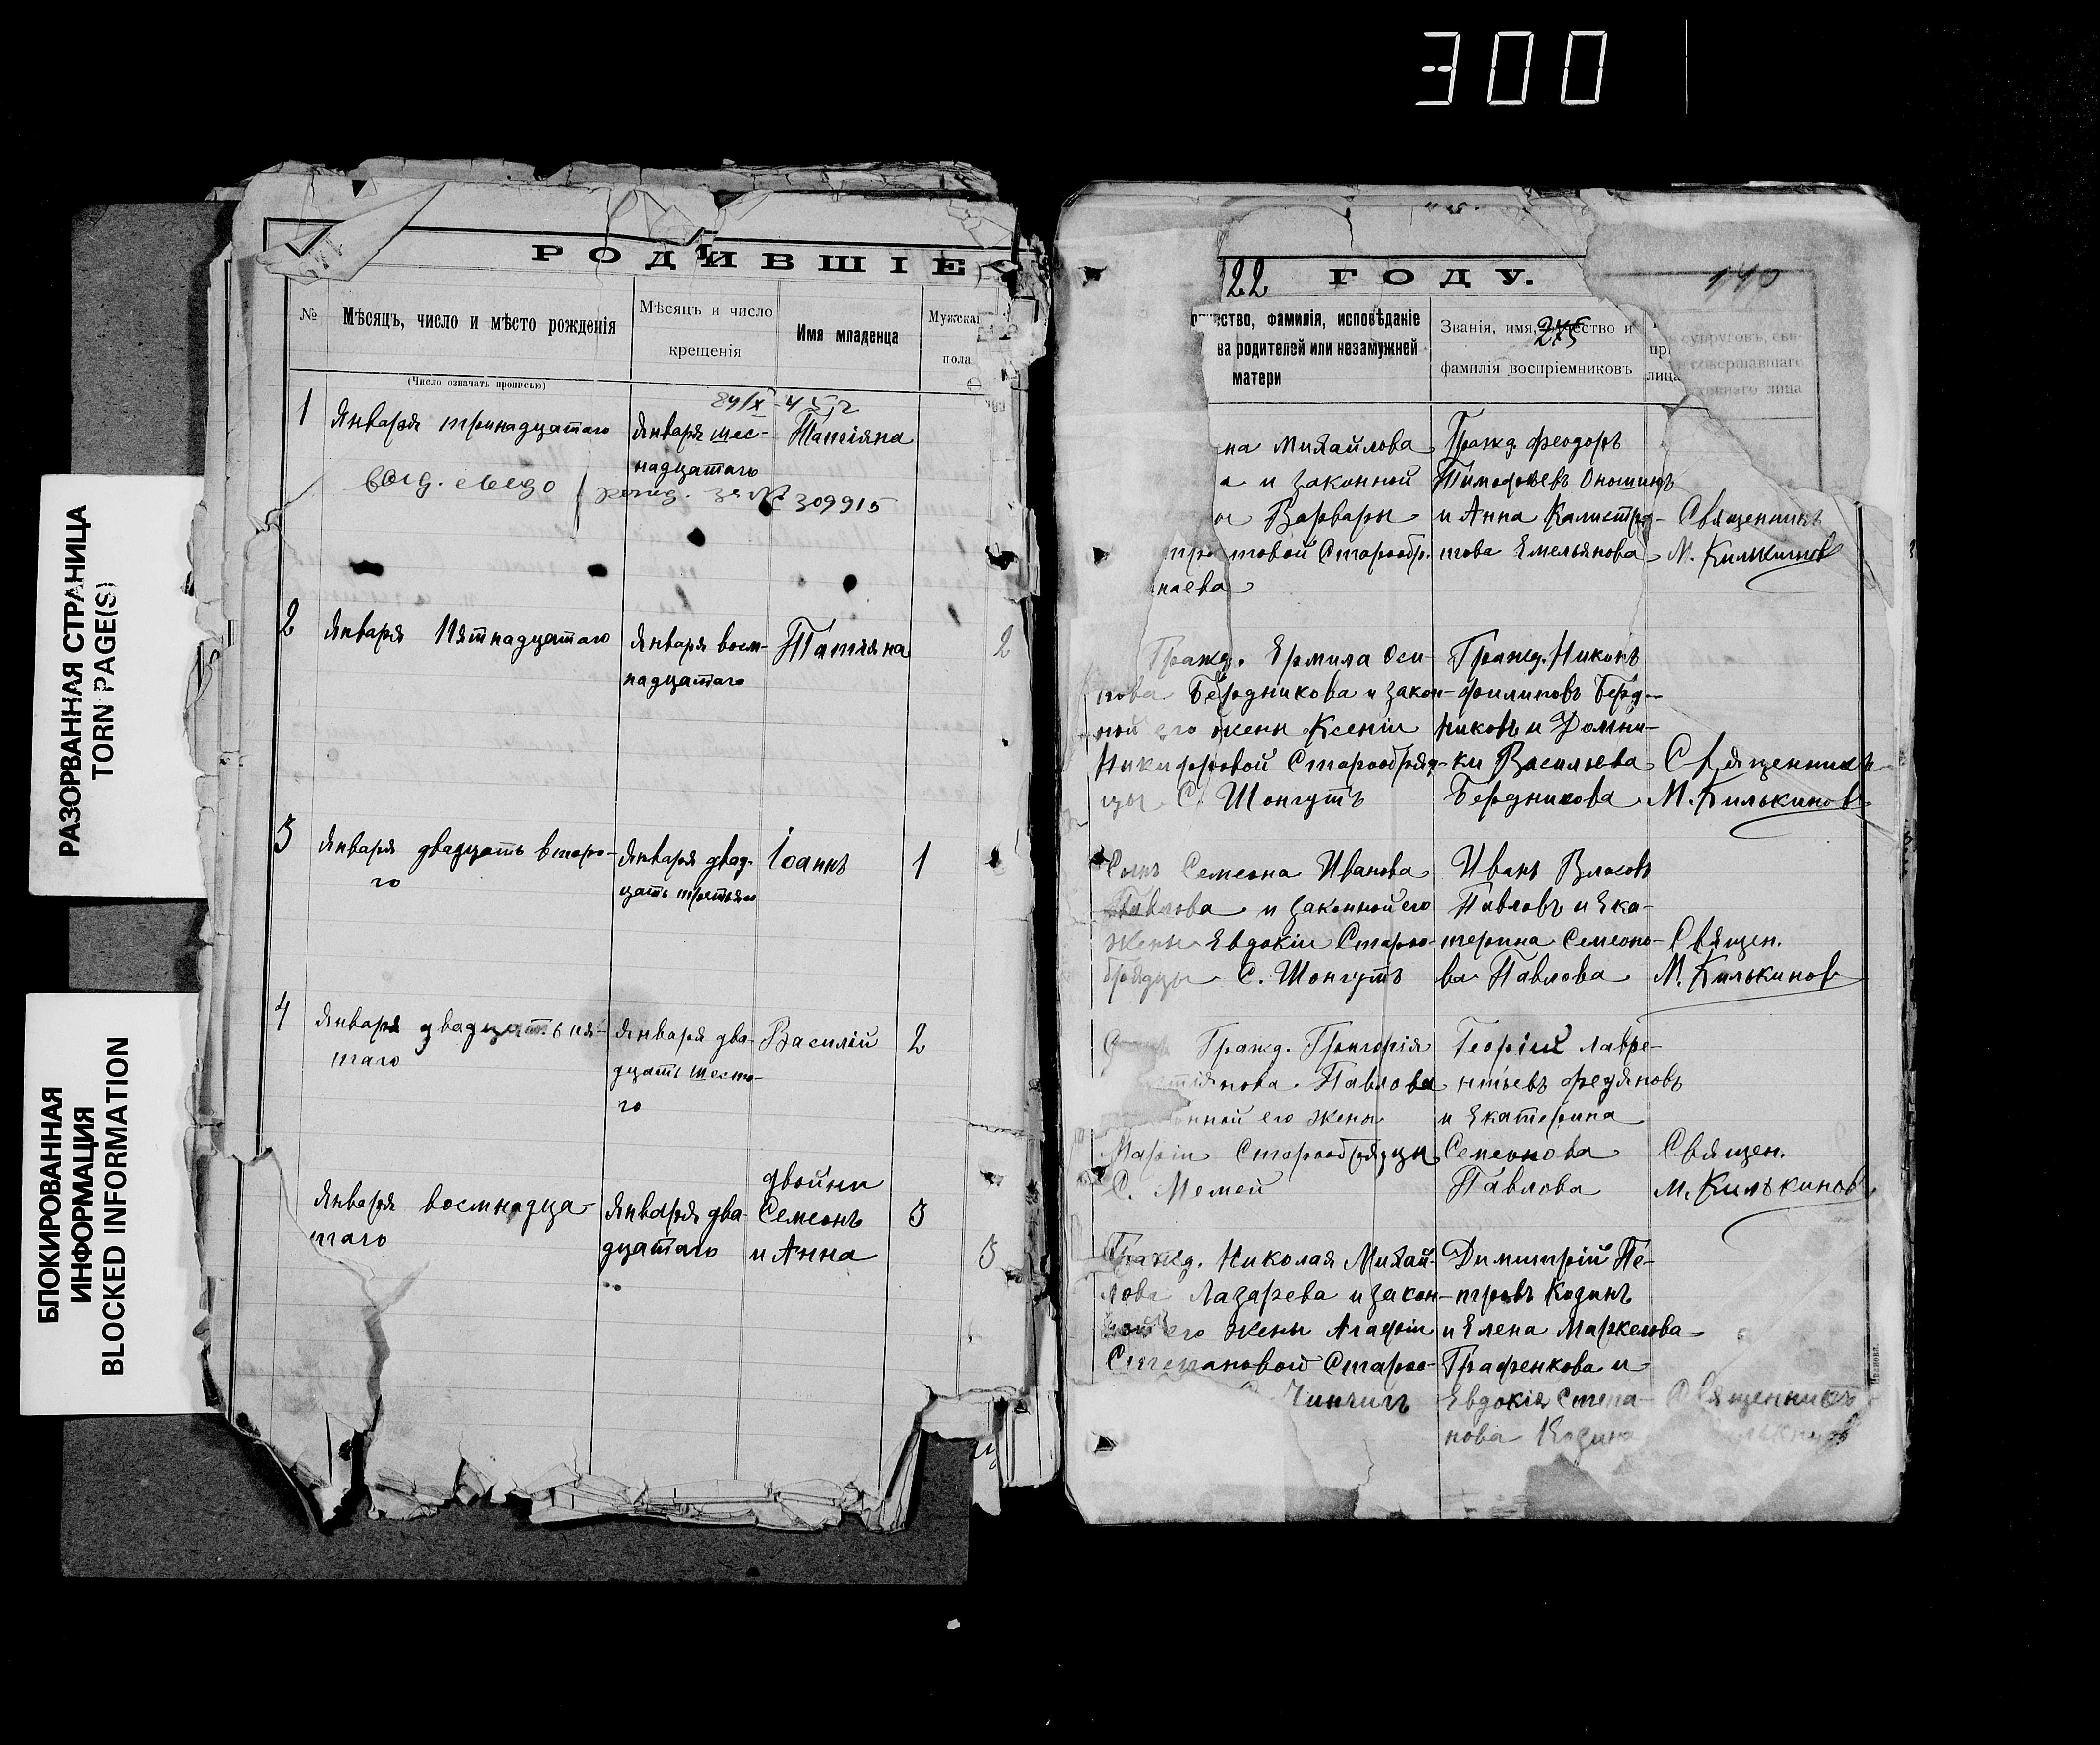 300
РАЗОРВАННАЯ СТРАНИЦА
TORN PAGE(S)
БЛОКИРОВАННАЯ
ИНФОРМАЦИЯ
BLOCKED INFORMATION
РОДИВШІЕС
№
Мѣсяцъ, число и мѣсто рожденія
(Число означать прописью)
Мѣсяцъ и число
крещенія
Имя младенца
Мужскаг
пола
1
Января тринадцатаго
Января шес-
надцатаго
Татіяна
309915
2
Января Пятнадцатаго
Января восм-
надцатаго
Татіяна
2
3
Января двадцать второ-
го
Января двад-
цать третьяго
Іоаннъ
1
4
Января двадцать пя-
таго
Января два-
дцать шесто-
го
Василій
2
Января восмнадца-
таго
Января два-
дцатаго
двойни
Семеонъ
и Анна
3
3
22 ГОДУ.
140
275
чество, фамилія, исповѣданіе
ва родителей или незамужней
матери
Званія, имя, отчество и
фамилія воспріемниковъ
супруговъ, сви-
совершавшаго
лица
на Михайлова
а и законной
Варвары
товой Старообр.
наева
Гражд. Феодоръ
Тимофеевъ Оношинъ
и Анна Калистра-
това Емельянова
Священникъ
М. Килькинов
Гражд. Ермила Оси-
пова Бердникова и закон-
ной его жены Ксеніи
Никифоровой Старообряд-
цы С. Шонгутъ
Гражд. Никонъ
Филиповъ Берд-
никовъ и Домни-
ки Васильева
Бердникова
Священникъ
М. Килькинов
Сынъ Семеона Иванова
Павлова и законной его
жены Евдокіи Старо-
брядцы С. Шонгутъ
Иванъ Власовъ
Павловъ и Ека-
терина Семеоно-
ва Павлова
Священ.
М. Килькинов
Гражд. Григорія
нова Павлова
нной его жены
Маріи Старообрядцы
С. Мемей
Георгій Лавре-
нтьевъ Федяновъ
и Екатерина
Семеонова
Павлова
Священ.
М. Килькинов
Гражд. Николая Михай-
лова Лазарева и закон-
ной его жены Агафіи
Степановой Старо-
Чинчигъ
Димитрій Пе-
тровъ Кодинъ
и Елена Маркелова
Графенкова и
Евдокія Степа-
нова Кодина
Священникъ